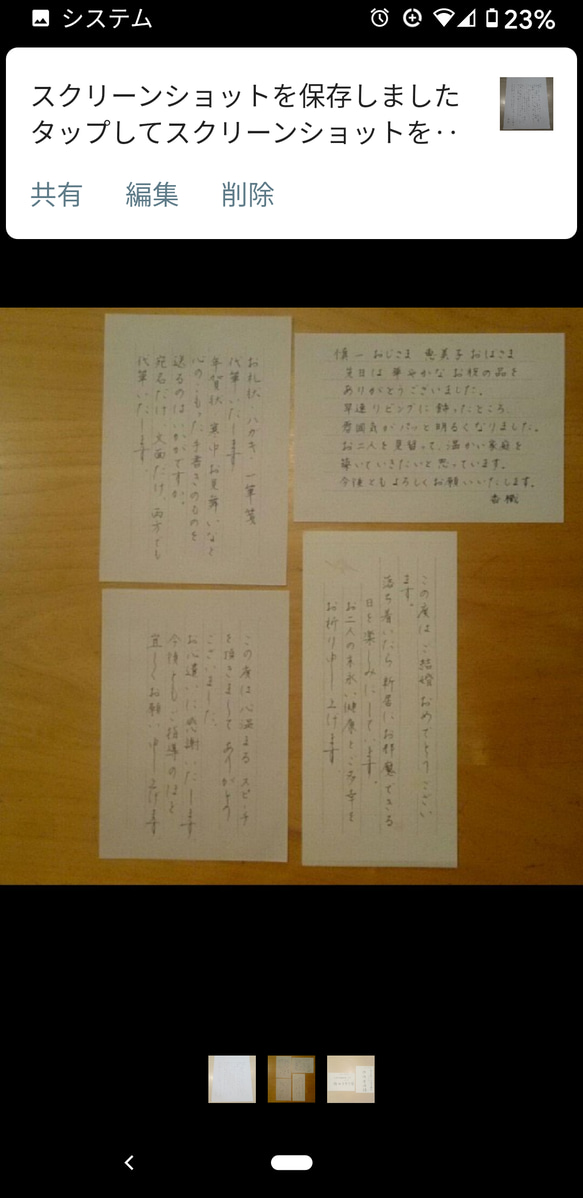 システム
23%
スクリーンショットを保存しました
タップしてスクリーンショットを‥
共有
編集
削除
お礼状 ハガキ 一筆箋
代筆いたします
年賀状 寒中お見舞いなど
心のこもった手書きのものを
送るのはいかがですか。
宛名だけ、文面だけ、両方でも
代筆いたします
慎一おじさま 恵美子おばさま
先日は華やかなお祝の品を
ありがとうございました。
早速リビングに飾ったところ
雰囲気がパッと明るくなりました。
お二人を見習って、温かい家庭を
築いていきたいと思っています。
今後ともよろしくお願いいたします。
この度は心温まるスピーチ
を頂きまして ありがとう
ございました。
お心遣いに感謝いたします
今後ともご指導のほど
宜しくお願い申し上げます
この度は ご結婚おめでとうござい
ます。
落ち着いたら新居にお邪魔できる
日を楽しみにしています。
お二人の末永い健康とご多幸を
お祈り申し上げます